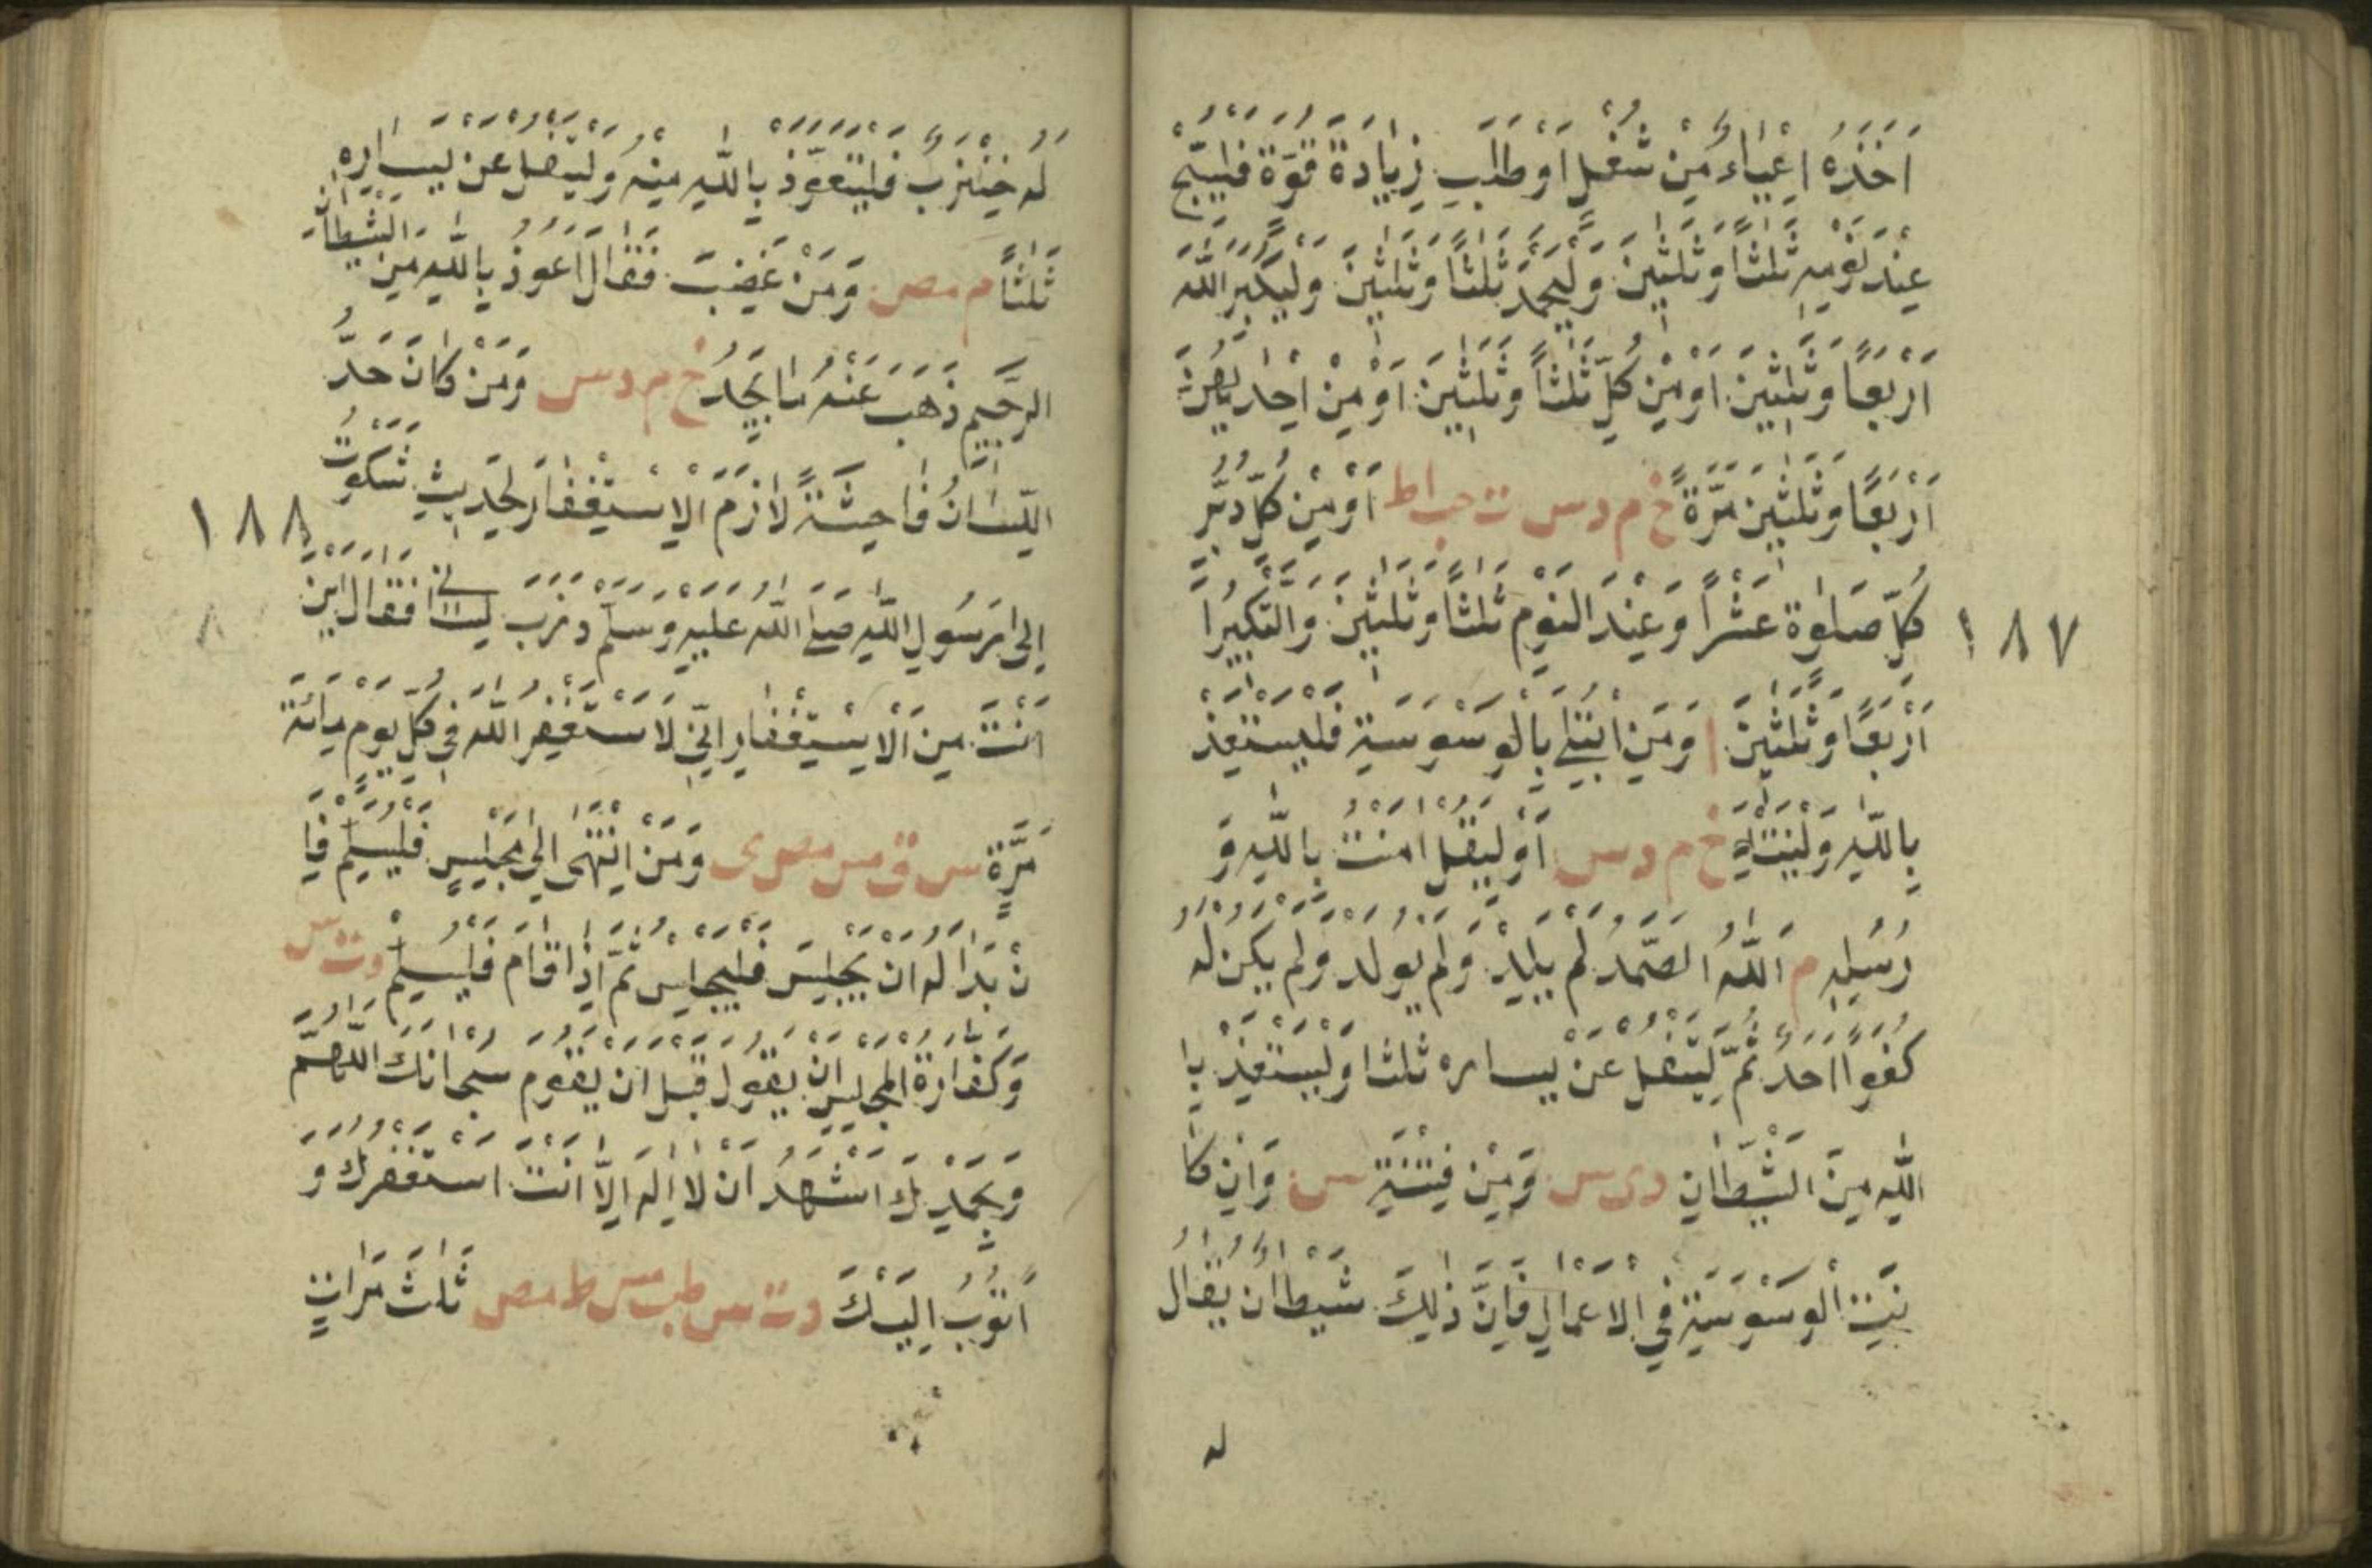 اَخَذَهُ اِعْيَاءٌ مِنْ شُغْلٍ اَوْ طَلَبِ زِيَادَةَ قُوَّةَ فَلْيُسَبِّحْ
عِنْدَ نَوْمِهِ ثَلٰثًا وَثَلٰثِينَ وَلْيَحْمَدْ ثَلٰثًا وَثَلٰثِينَ وَلْيُكَبِّرِ اللّٰهَ
اَرْبَعًا وَثَلٰثِينَ اَوْ مِنْ كُلٍّ ثَلٰثًا وَثَلٰثِينَ اَوْ مِنْ اِحْدٰيهُنَّ
اَرْبَعًا وَثَلٰثِينَ مَرَّةً خ م د س ت حب ا ط اَوْ مِنْ كُلٍّ دُبُرَ
١٨٧
كُلِّ صَلٰوةٍ عَشْرًا وَعِنْدَ النَّوْمِ ثَلٰثًا وَثَلٰثِينَ وَالتَّكْبِيرُا
اَرْبَعًا وَثَلٰثِينَ ا وَمَنِ ابْتُلِيَ بِالْوَسْوَسَةِ فَلْيَسْتَعِذْ
بِاللّٰهِ وَلْيَنْتَهِ خ م د س اَوْ لِيَقُلْ اٰمَنْتُ بِاللّٰهِ وَ
رُسُلِهِ م اَللّٰهُ الصَّمَدُ لَمْ يَلِدْ وَلَمْ يُولَدْ وَلَمْ يَكُنْ لَهُ
كُفُوًا اَحَدٌ ثُمَّ لِيَتْفُلْ عَنْ يساره ثلثا وَلْيَسْتَعِذْ بِا
اللّٰهِ مِنَ الشَّيْطَانِ د ى س وَمِنْ فِتْنَتِهِ س وَاِنْ كَا
نَتِ الْوَسْوَسَةِ فِي الْاَعْمَالِ فَاِنَّ ذٰلِكَ شَيْطَانٌ يُقَالُ
له
لَهُ خِنْزَبٌ فَلْيَتَعَوَّذْ بِاللّٰهِ مِنْهُ وَلْيَتْفُلْ عَنْ يَسَارِهِ
ثَلٰثًا م مص وَمَنْ غَضِبَ فَقَالَ اَعُوذُ بِاللّٰهِ مِنَ الشَّيْطَانِ
الرَّجِيمِ ذَهَبَ عَنْهُ مَا يَجِدُ خ م د س وَمَنْ كَانَ حَدُّ
اللِّسَانُ فَاحِشَةً لَازَمَ الْاِسْتِغْفَارَ لِحَدِيثِ شَكَوْتُ
١٨٨
اِلٰى رَسُولِ اللّٰهِ صَلَّى اللّٰهُ عَلَيْهِ وَسَلَّمَ ذَرَبَ لِسَانِي فَقَالَ اَيْنَ
٨
اَنْتَ مِنَ الْاِسْتِغْفَارِ اِنِّي لَاَسْتَغْفِرُ اللّٰهَ فِي كُلِّ يَوْمٍ مِائَةَ
مَرَّةٍ س ق مس مص ى وَمَنْ اِنْتَهٰى اِلٰى مَجْلِسٍ فَلْيُسَلِّمْ فَاِ
نْ بَدَا لَهُ اَنْ يَجْلِسَ فَلْيَجْلِسْ ثُمَّ اِذَا قَامَ فَلْيُسَلِّمْ د ت س
وَكَفَّارَةُ الْمَجْلِسِ اَنْ يَقُولَ قَبْلَ اَنْ يَقُومَ سُبْحَانَكَ اللّٰهُمَّ
وَبِحَمْدِكَ اَشْهَدُ اَنْ لَا اِلٰهَ اِلَّا اَنْتَ اَسْتَغْفِرُكَ وَ
اَتُوبُ اِلَيْكَ د ت س طب مس ط مص ثَلٰثَ مَرَّاتٍ